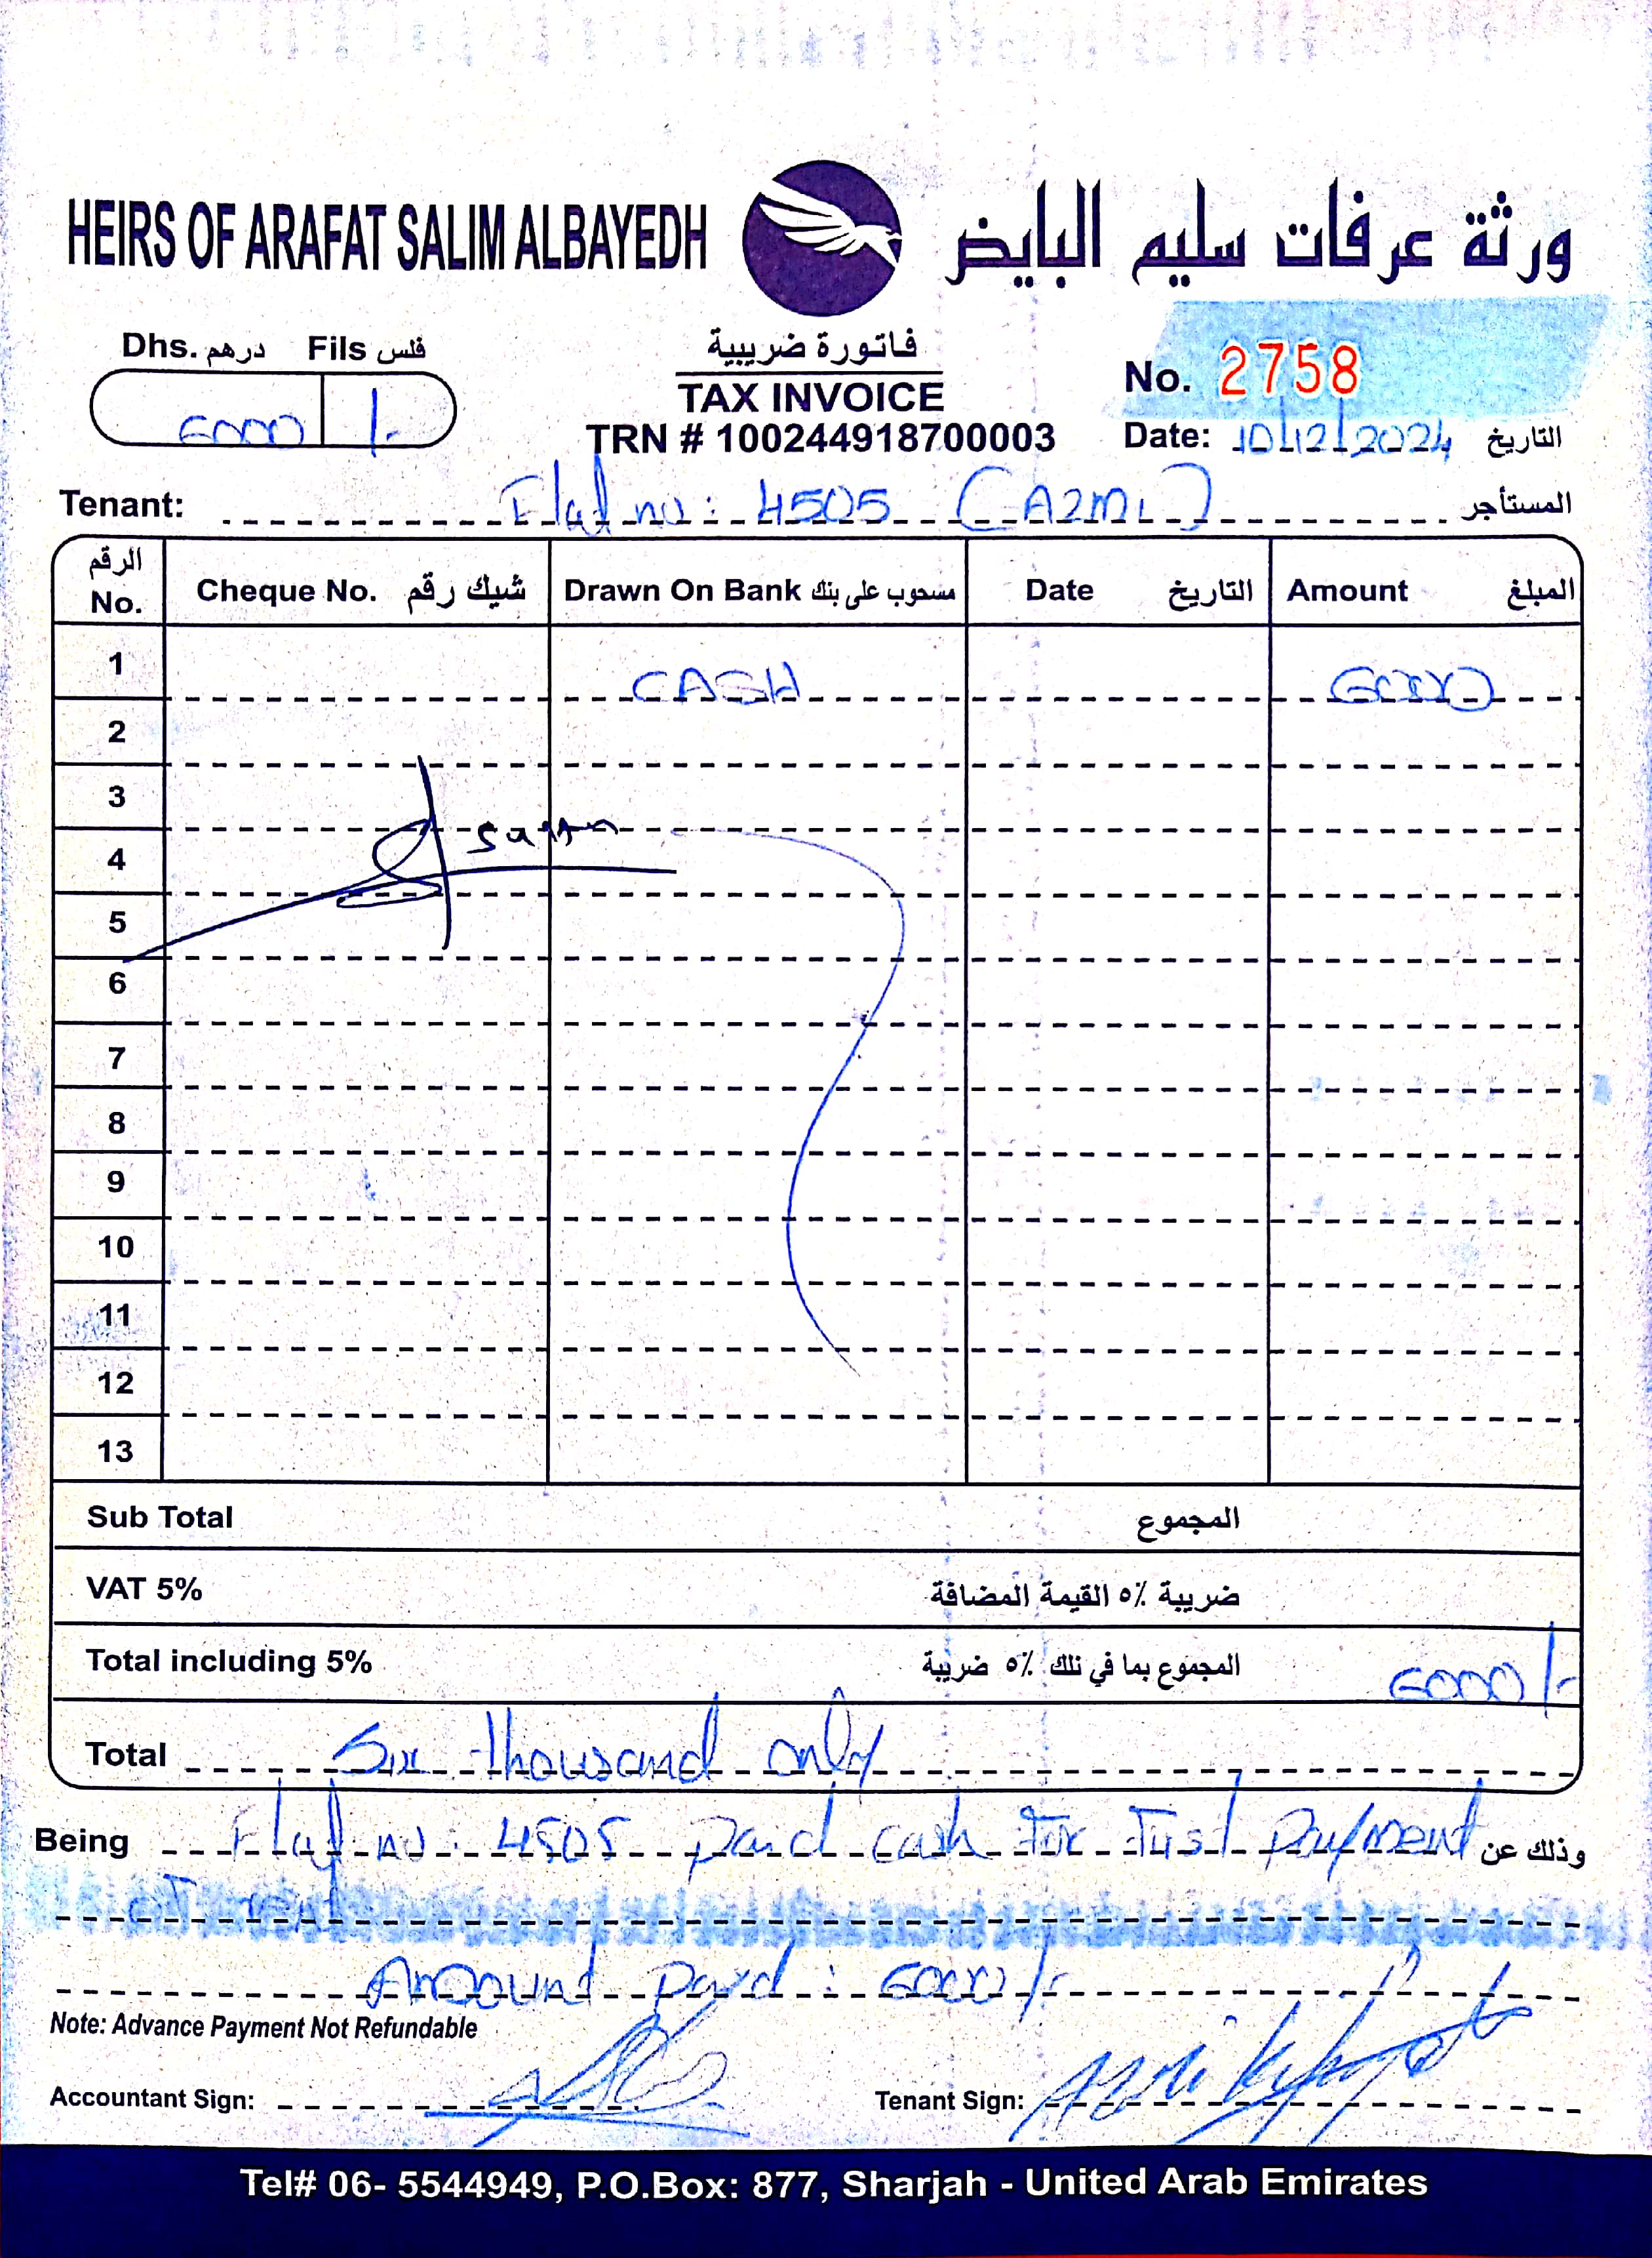 HEIRS OF ARAFAT SALIM ALBAYEDH ورثة عرفات سليم البايض
Dhs. درهم Fils فلس
6000 /-
فاتورة ضريبية
TAX INVOICE
TRN # 100244918700003
No. 2758
Date: 10/12/2024 التاريخ
Tenant: Flat no: 4505 (AZMI) المستأجر
الرقم No. Cheque No. شيك رقم Drawn On Bank مسحوب على بنك Date التاريخ Amount المبلغ
1 CASH 6000
2
3
4
5
6
7
8
9
10
11
12
13
Sub Total المجموع
VAT 5% ضريبة ٥٪ القيمة المضافة
Total including 5% المجموع بما في ذلك ٥٪ ضريبة 6000/-
Total Six thousand only
Being Flat no: 4505 paid cash for First Payment وذلك عن
Amount paid: 6000/-
Note: Advance Payment Not Refundable
Accountant Sign: Tenant Sign:
Tel# 06- 5544949, P.O.Box: 877, Sharjah - United Arab Emirates